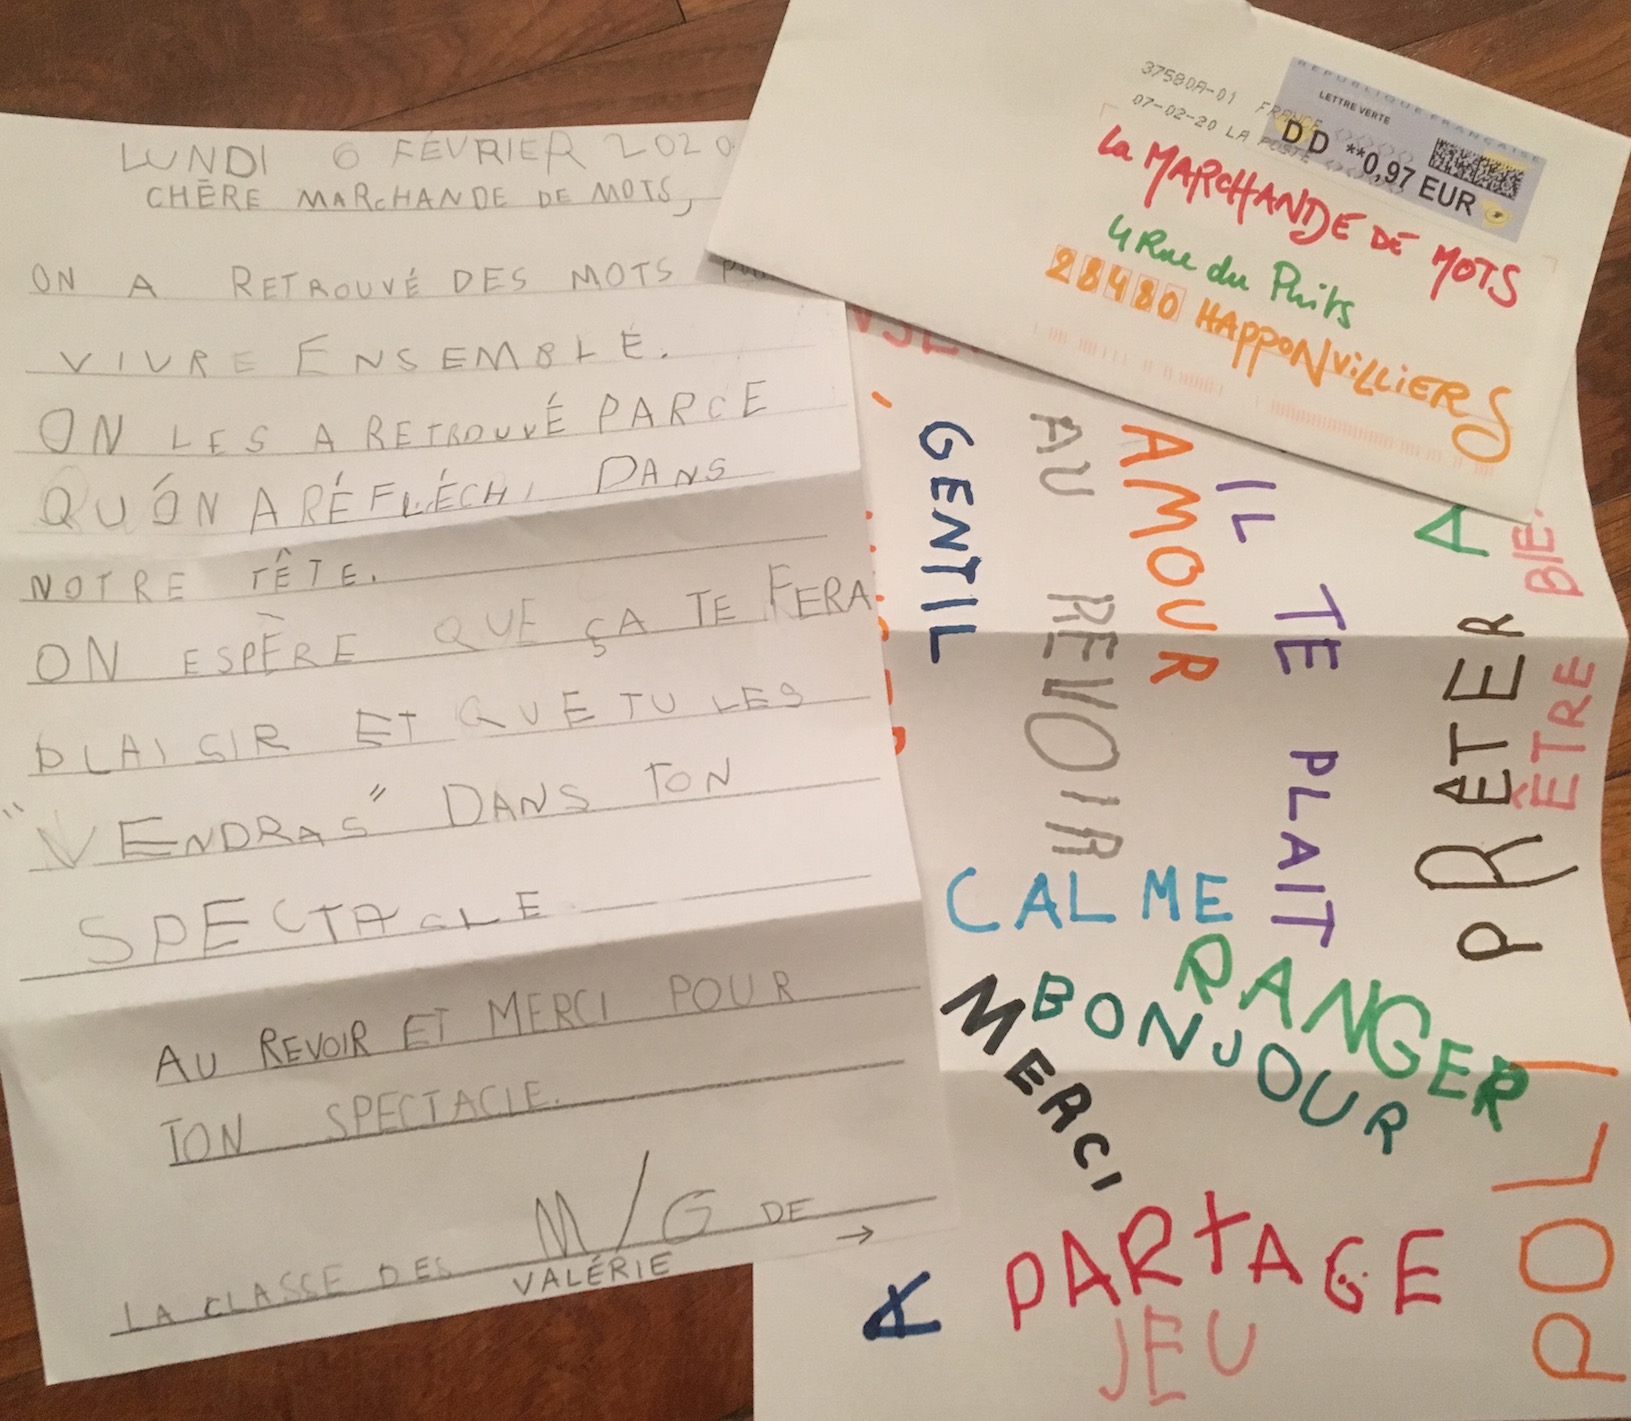 LUNDI 6 FÉVRIER 2020
CHÈRE MARCHANDE DE MOTS,
ON A RETROUVÉ DES MOTS
VIVRE ENSEMBLE.
ON LES A RETROUVÉ PARCE
QU'ON A RÉFLÉCHI DANS
NOTRE TÊTE.
ON ESPÈRE QUE ÇA TE FERA
PLAISIR ET QUE TU LES
"VENDRAS" DANS TON
SPECTACLE
AU REVOIR ET MERCI POUR
TON SPECTACLE.
LA CLASSE DES M/G DE
VALÉRIE →
37580A-01 FRANCE
07-02-20 LA POSTE
RÉPUBLIQUE FRANÇAISE
LETTRE VERTE
DD **0,97 EUR
La MARCHANDE DE MOTS
4 Rue du Puits
28480 HAPPONVILLIERS
GENTIL
AU REVOIR
AMOUR
IL TE PLAIT
A
PRÊTER
ÊTRE
CALME
RANGER
BONJOUR
MERCI
POLI
PARTAGE
JEU
A